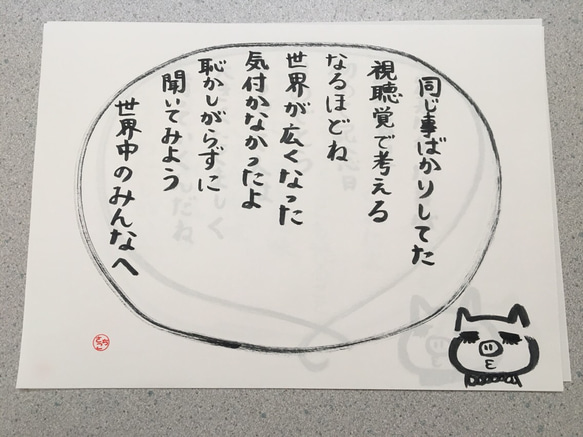 同じ事ばかりしてた
視聴覚で考える
なるほどね
世界が広くなった
気付かなかったよ
恥かしがらずに
聞いてみよう
世界中のみんなへ